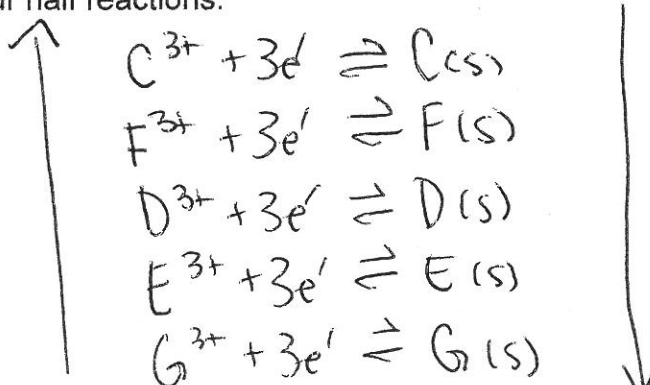 ur half reactions.
C³⁺ + 3e⁻ ⇌ C(s)
F³⁺ + 3e⁻ ⇌ F(s)
D³⁺ + 3e⁻ ⇌ D(s)
E³⁺ + 3e⁻ ⇌ E(s)
G³⁺ + 3e⁻ ⇌ G(s)